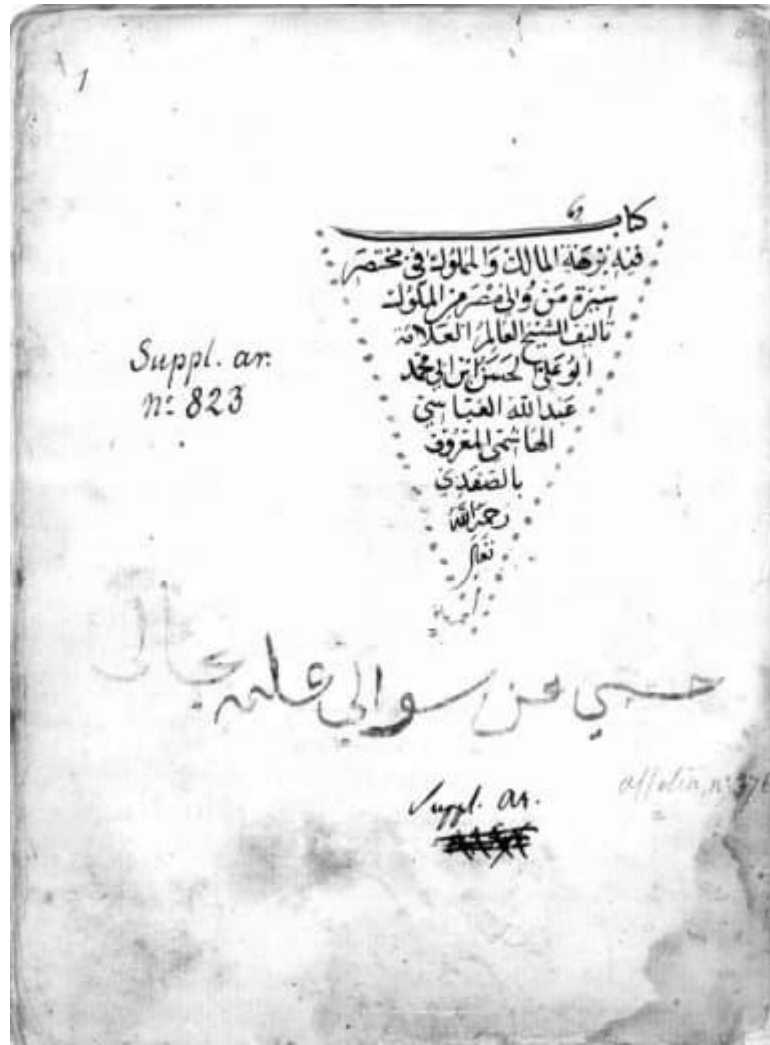 1
كتاب
فيه نزهة المالك والمملوك في مختصر
سيرة من ولي مصر من الملوك
تاليف الشيخ العالم العلامة
ابو علي الحسن ابن ابي محمد
عبد الله العباسي
الهاشمي المعروف
بالصفدي
رحمه الله
تعالى
Suppl. ar.
nº 823
حسبي عن سوالي علمه بحالي
Suppl. ar.